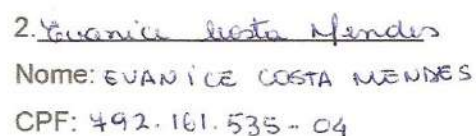 2. Evanice Costa Mendes
Nome: EVANICE COSTA MENDES
CPF: 792.161.535-04